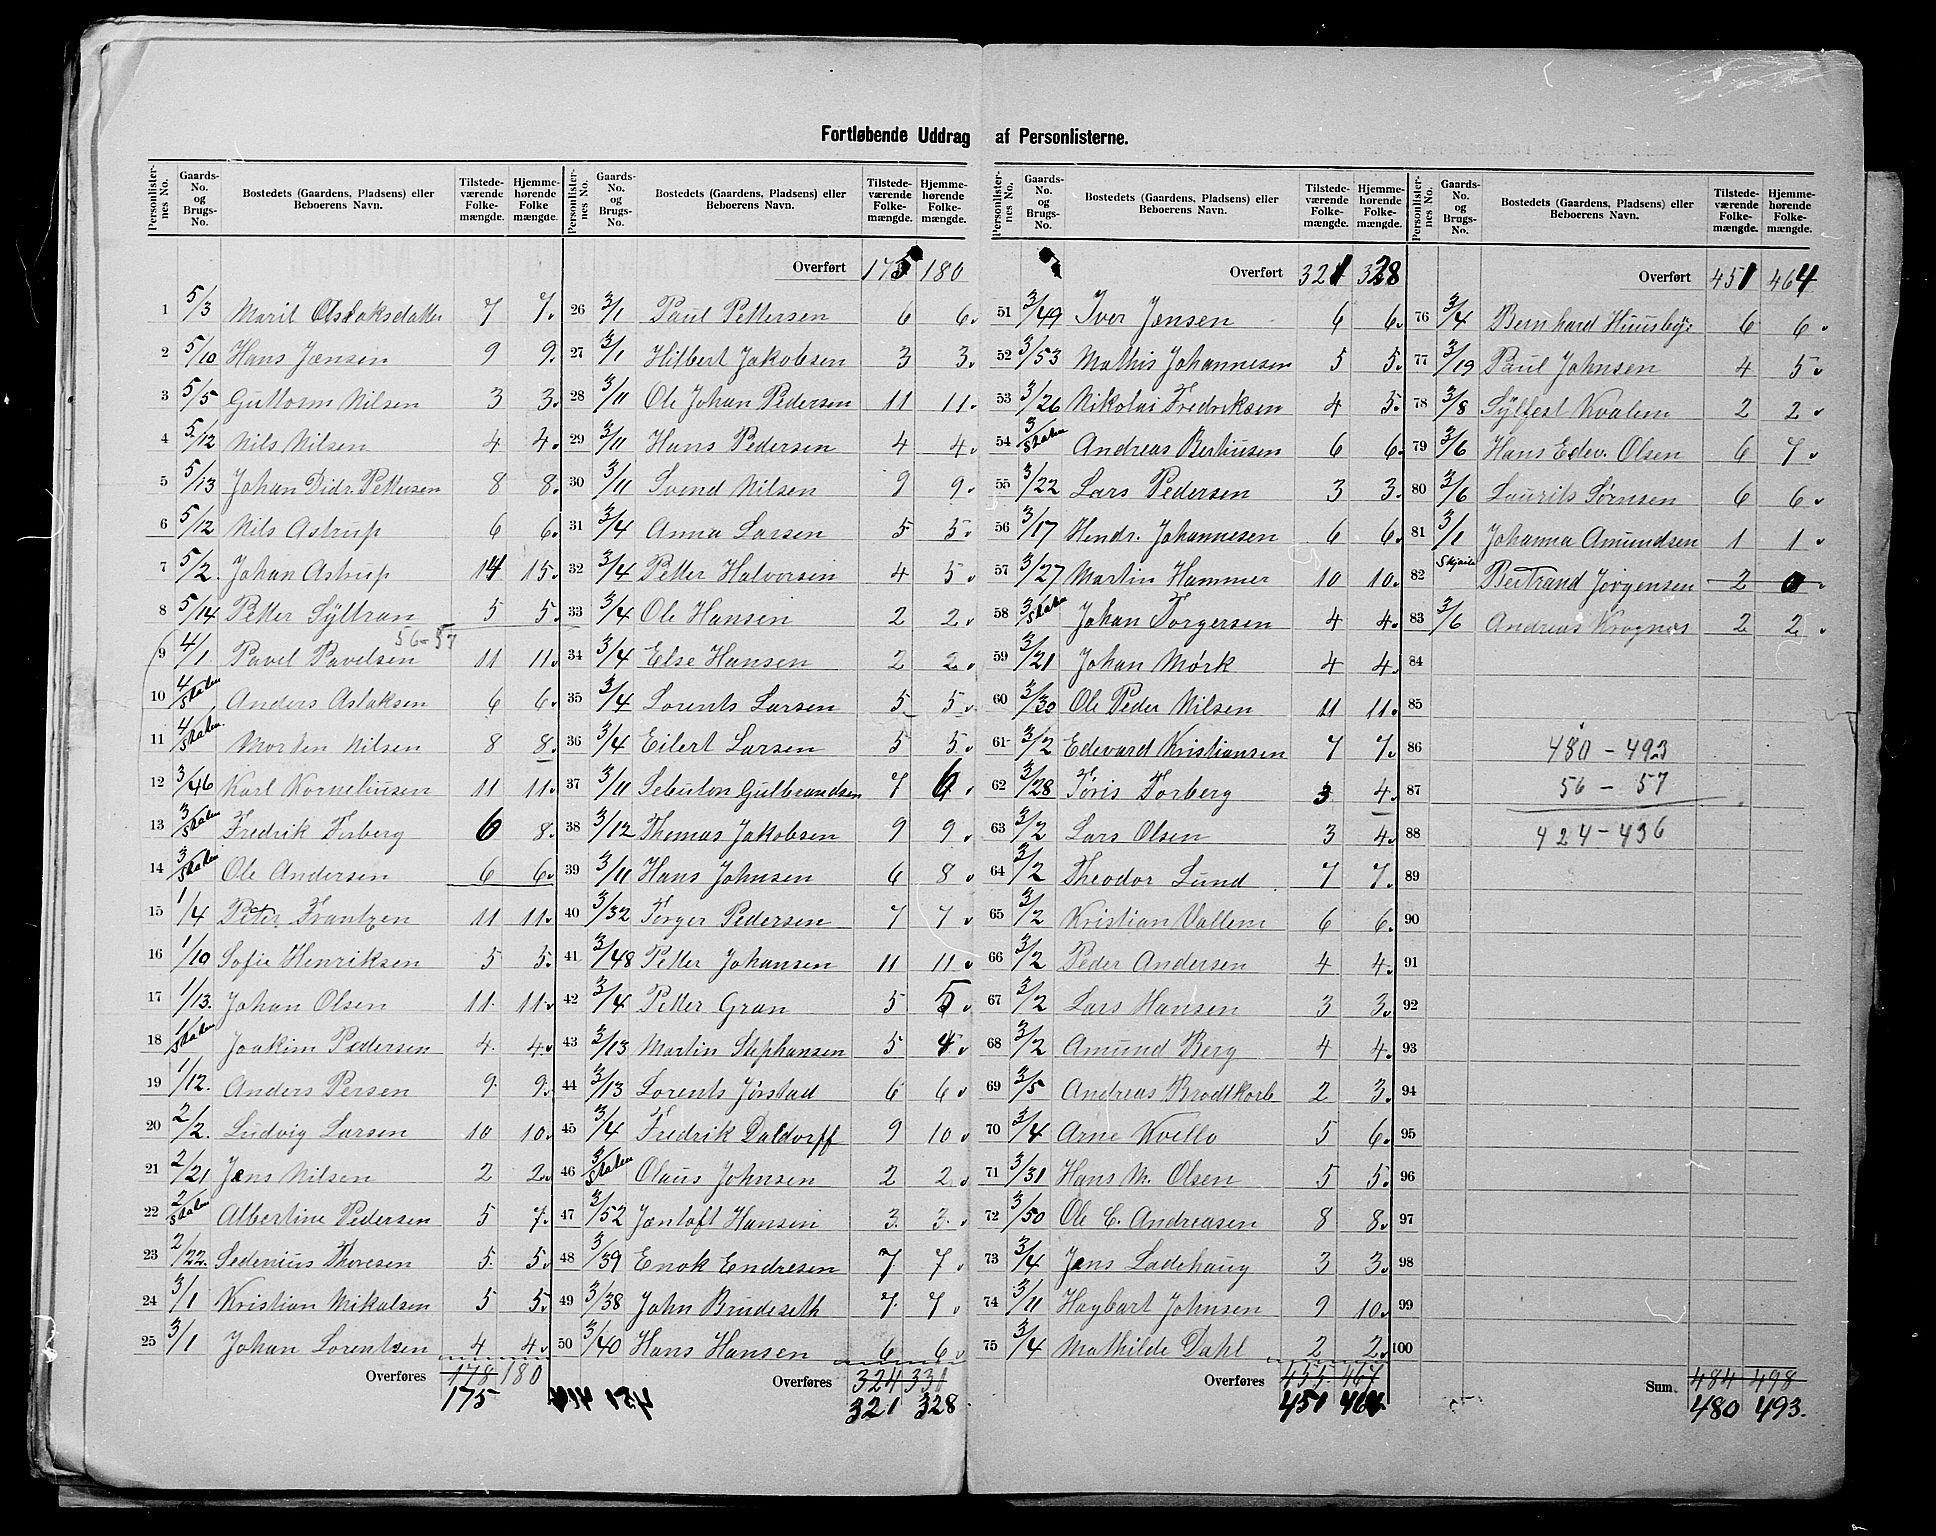 Fortløbende Uddrag af Personlisterne.
Personlisternes No. Gaards-No. og Brugs-No. Bostedets (Gaardens, Pladsens) eller Beboerens Navn. Tilstedeværende Folkemængde. Hjemmehørende Folkemængde.
1 5/3 Marit Oslaksdatter 7 7.
2 5/10 Hans Jensen 9 9.
3 5/5 Guttorm Nilsen 3 3.
4 5/12 Nils Nilsen 4 4.
5 5/13 Johan Didr. Pettersen 8 8.
6 5/12 Nils Astrup 6 6.
7 5/2. Johan Astrup 14 15.
8 5/14 Petter Syltran 5 5.
56-57
9 4/1 Pavel Pavelsen 11 11.
10 4/Staten Anders Aslaksen 6 6.
11 4/Staten Morten Nilsen 8 8.
12 3/46 Karl Korneliusen 11 11.
13 3/Staten Fredrik Forberg 6 8.
14 3/Staten Ole Andersen 6 6.
15 1/4 Peter Frantzen 11 11.
16 1/10 Sofie Henriksen 5 5.
17 1/13. Johan Olsen 11. 11.
18 1/Staten Joakim Pedersen 4. 4.
19 1/12. Anders Persen 9. 9.
20 2/2. Ludvig Larsen 10 10.
21 2/21 Jens Nilsen 2 2.
22 2/Staten Albertine Pedersen 5 7.
23 2/22. Sedenius Thoresen 5. 5.
24 3/1 Kristian Mikalsen 5 5.
25 3/1 Johan Lorentsen 4 4.
Overføres 178 180
175
Personlisternes No. Gaards-No. og Brugs-No. Bostedets (Gaardens, Pladsens) eller Beboerens Navn. Tilstedeværende Folkemængde. Hjemmehørende Folkemængde.
Overført 175 180
26 3/1 Paul Pettersen 6 6.
27 3/1 Hilbert Jakobsen 3 3.
28 3/11 Ole Johan Pedersen 11 11.
29 3/11 Hans Pedersen 4 4.
30 3/11 Svend Nilsen 9 9.
31 3/4 Anna Larsen 5 5.
32 3/4 Petter Halvorsen 4 5.
33 3/4 Ole Hansen 2 2.
34 3/4 Else Hansen 2 2.
35 3/4 Lorents Larsen 5 5.
36 3/4 Eilert Larsen 5 5.
37 3/11 Sebulon Gulbrandsen 7 6
38 3/12 Thomas Jakobsen 9 9.
39 3/11 Hans Johnsen 6 8
40 3/32 Torger Pedersen 7 7
41 3/48 Petter Johansen 11 11
42 3/4 Petter Gran 5 5
43 3/13 Martin Stephansen 5 4
44 3/13 Lorents Jørstad 6 6
45 3/4 Fredrik Daldorff 9 10
46 3/Staten Olaus Johnsen 2 2
47 3/52 Jentoft Hansen 3. 3.
48 3/39 Enok Endresen 7 7
49 3/38 John Brudeseth 7. 7
50 3/40 Hans Hansen 6 6
Overføres 324 331
321 328
Personlisternes No. Gaards-No. og Brugs-No. Bostedets (Gaardens, Pladsens) eller Beboerens Navn. Tilstedeværende Folkemængde. Hjemmehørende Folkemængde.
Overført 321 328
51 3/49 Iver Jensen 6 6.
52 3/53 Mathis Johannesen 5 5.
53 3/26 Nikolai Fredriksen 4 5.
54 3/Staten Andreas Berliusen 6 6.
55 3/22 Lars Pedersen 3 3.
56 3/17 Hendr. Johannesen 6 6.
57 3/27 Martin Hammer 10 10.
58 3/Staten Johan Torgersen 4 4.
59 3/21 Johan Mørk 4 4.
60 3/30 Ole Peder Nilsen 11 11.
61 3/2 Edevard Kristiansen 7 7.
62 3/28 Toris Forberg 3 4.
63 3/2 Lars Olsen 3 4.
64 3/2 Theodor Lund 7 7.
65 3/2 Kristian Vallem 6 6.
66 3/2 Peder Andersen 4 4.
67 3/2 Lars Hansen 3 3.
68 3/2 Amund Berg 4 4.
69 3/5 Andreas Brodtkorb 2 3.
70 3/4 Arne Kvello 5 6.
71 3/31 Hans M. Olsen 5 5.
72 3/50 Ole C. Andreasen 8 8.
73 3/4 Jens Ladehaug 3 3.
74 3/11 Hagbart Johnsen 9 10.
75 3/4 Mathilde Dahl 2 2.
Overføres 455 467
451 464
Personlisternes No. Gaards-No. og Brugs-No. Bostedets (Gaardens, Pladsens) eller Beboerens Navn. Tilstedeværende Folkemængde. Hjemmehørende Folkemængde.
Overført 451 464
76 3/4 Bernhard Huusby 6 6
77 3/19 Paul Johnsen 4 5
78 3/8 Sylfest Kvalem 2 2
79 3/6 Hans Edev. Olsen 6 7
80 3/6 Laurits Sørnsen 6 6
81 3/1 Johanna Amundsen 1 1
82 Bertrand Jørgensen 2 0
83 3/6 Andreas Krognes 2 2
84
85
86 480 - 493
87 56 - 57
88 424 - 436
89
90
91
92
93
94
95
96
97
98
99
100
Sum 484 498
480 493.